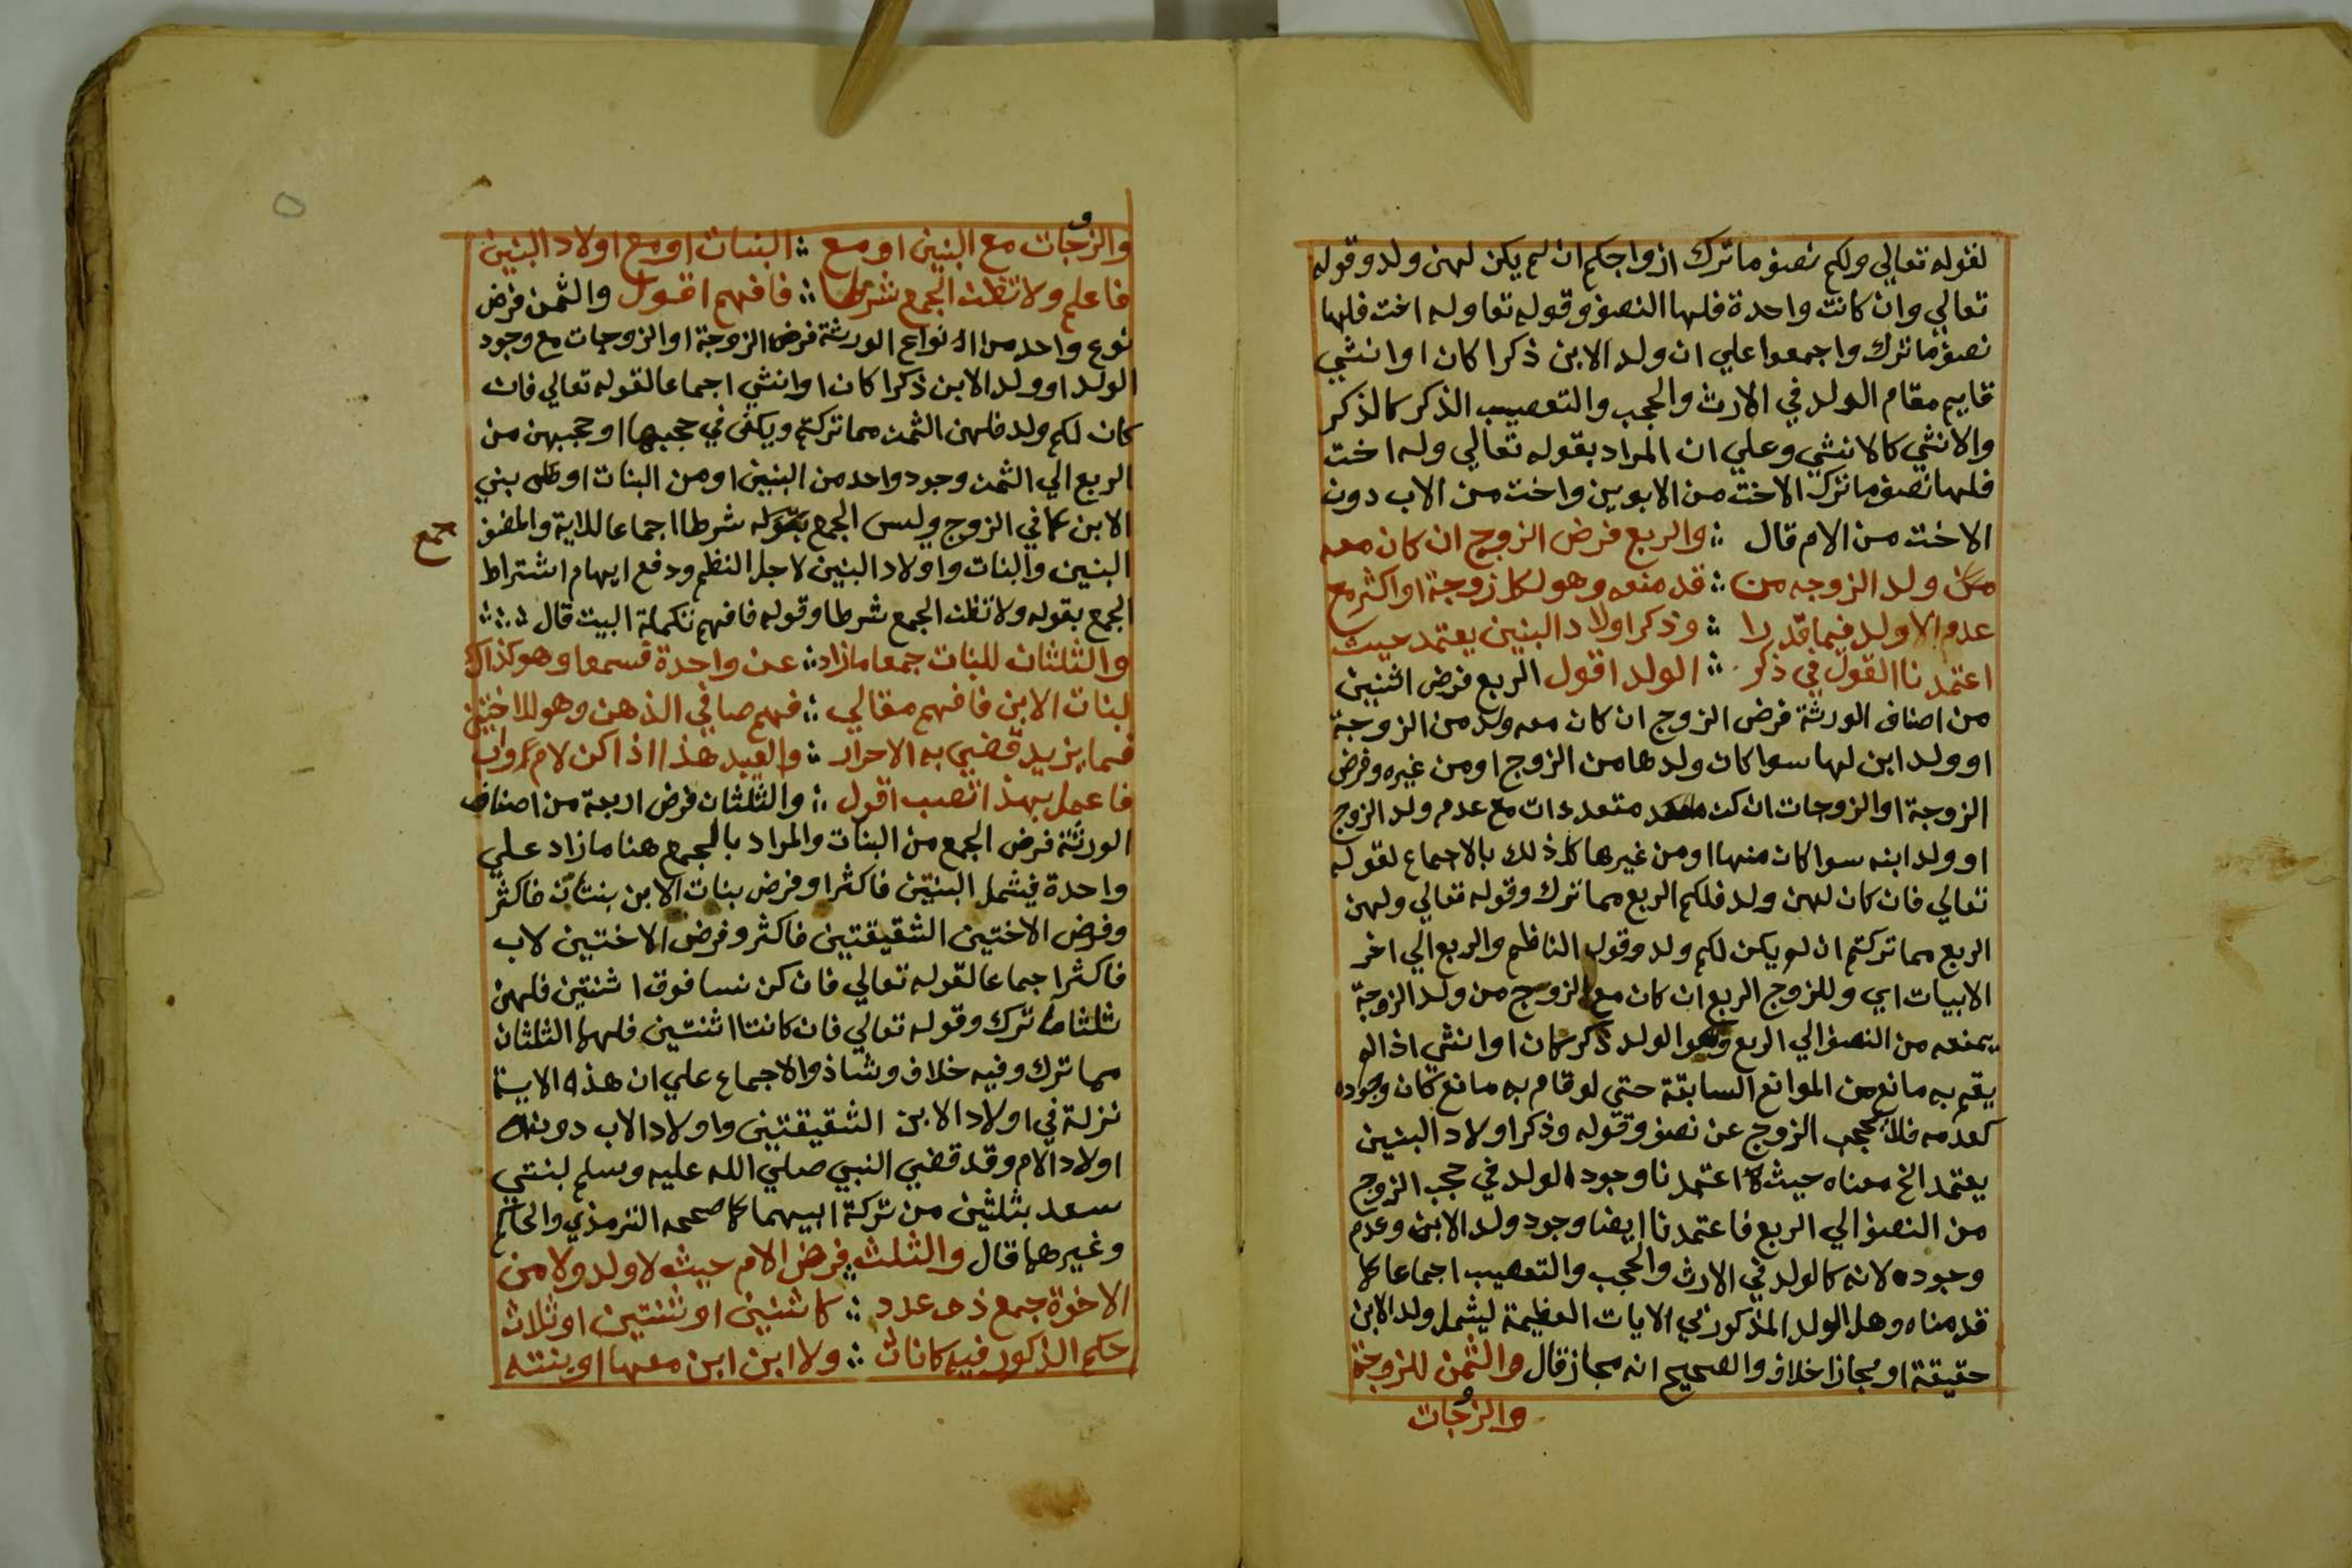 لقوله تعالي ولكم نصف ما ترك ازواجكم ان لم يكن لهن ولد وقوله
تعالي وان كانت واحدة فلها النصف وقوله تعا وله اخت فلها
نصف ما ترك واجمعوا علي ان ولد الابن ذكرا كان او انثي
قايم مقام الولد في الارث والحجب والتعصيب الذكر كالذكر
والانثي كالانثي وعلي ان المراد بقوله تعالي وله اخت
فلها نصف ما ترك الاخت من الابوين واخت من الاب دون
الاخت من الام قال ∴ والربع فرض الزوج ان كان معه
من ولد الزوجه من ∴ قد منعه وهو لكل زوجة او اكثر مع
عدم الاولد فيما قدرا ∴ وذكر اولاد البنين يعتمد حيث
اعتمدنا القول في ذكر ∴ الولد اقول الربع فرض اثنين
من اصناف الورثة فرض الزوج ان كان معه ولد من الزوجة
او ولد ابن لها سوا كان ولدها من الزوج او من غيره وفرض
الزوجة او الزوجات ان كن متعددات مع عدم ولد الزوج
او ولد ابنه سوا كان منها او من غيرها كل ذلك بالاجماع لقوله
تعالي فان كان لهن ولد فلكم الربع مما ترك وقوله تعالي ولهن
الربع مما تركتم ان لم يكن لكم ولد وقول الناظم والربع الي اخر
الابيات اي وللزوج الربع ان كان مع الزوج من ولد الزوجة
يمنعه من النصف الي الربع وهو الولد ذكر كان او انثي اذا لم
يقم به مانع من الموانع السابقة حتي لو قام به مانع كان وجوده
كعدمه فلا يحجب الزوج عن نصف وقوله وذكر اولاد البنين
يعتمد الخ معناه حيث اعتمدنا وجود الولد في حجب الزوج
من النصف الي الربع فاعتمدنا ايضا وجود ولد الابن وعدم
وجوده لانه كالولد في الارث والحجب والتعصيب اجماعا كما
قدمناه وهل الولد المذكور في الايات العظيمة ليشمل ولد الابن
حقيقة او مجازا خلاف والصحيح انه مجاز قال والثمن للزوجة
والزوجات
والزوجات مع البنين او مع ∴ البنات او مع اولاد البنين
فاعلم ولا تظن الجمع شرطا ∴ فافهم اقول والثمن فرض
نوع واحد من انواع الورثة فرض الزوجة او الزوجات مع وجود
الولد او ولد الابن ذكرا كان او انثي اجماعا لقوله تعالي فان
كان لكم ولد فلهن الثمن مما تركتم ويكفي في حجبها او حجبهن من
الربع الي الثمن وجود واحد من البنين او من البنات او من بني
الابن كما في الزوج وليس الجمع بقوله شرطا اجماعا للاية والمصنف
جمع
البنين والبنات واولاد البنين لاجل النظم ودفع ايهام اشتراط
الجمع بقوله ولا تظن الجمع شرطا وقوله فافهم تكملة البيت قال ∴
والثلثان للبنات جمعا ما زاد ∴ عن واحدة فسمعا وهو كذاك
لبنات الابن فافهم مقالي ∴ فهم صافي الذهن وهو للاختين
فما يزيد قضي به الاحرار ∴ والعبد هذا اذا كن لام واب
فاعمل بهذا تصب اقول ∴ والثلثان فرض اربعة من اصناف
الورثة فرض الجمع من البنات والمراد بالجمع هنا ما زاد علي
واحدة فيشمل البنتين فاكثر او فرض بنات الابن بنتان فاكثر
وفرض الاختين الشقيقتين فاكثر وفرض الاختين لاب
فاكثر اجماعا لقوله تعالي فان كن نسا فوق اثنتين فلهن
ثلثا ما ترك وقوله تعالي فان كانتا اثنتين فلهما الثلثان
مما ترك وفيه خلاف وشاذ والاجماع علي ان هذه الاية
نزلة في اولاد الابن الشقيقتين واولاد الاب دون
اولاد الام وقد قضي النبي صلي الله عليه وسلم لبنتي
سعد بثلثين من تركة ابيهما كما صححه الترمذي والحاكم
وغيرهما قال والثلث فرض الام حيث لا ولد ولا من
الاخوة جمع ذي عدد ∴ كاثنين او ثنتين او ثلاث
حكم الذكور فيه كاناث ∴ ولا ابن ابن معها او بنته